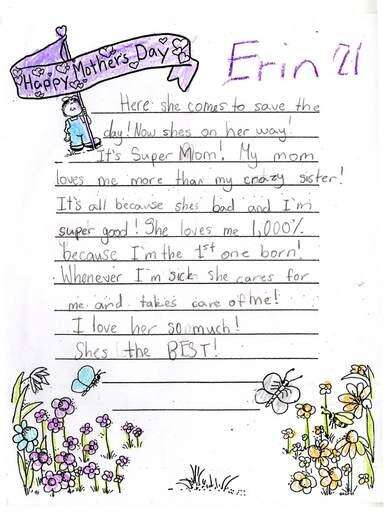 Happy Mothers Day
Erin 21
Here she comes to save the
day! Now shes on her way!
It's Super Mom! My mom
loves me more than my crazy sister!
It's all because shes bad and I'm
super good! She loves me 1,000%
because I'm the 1st one born!
Whenever I'm sick she cares for
me and takes care of me!
I love her so much!
Shes the BEST!